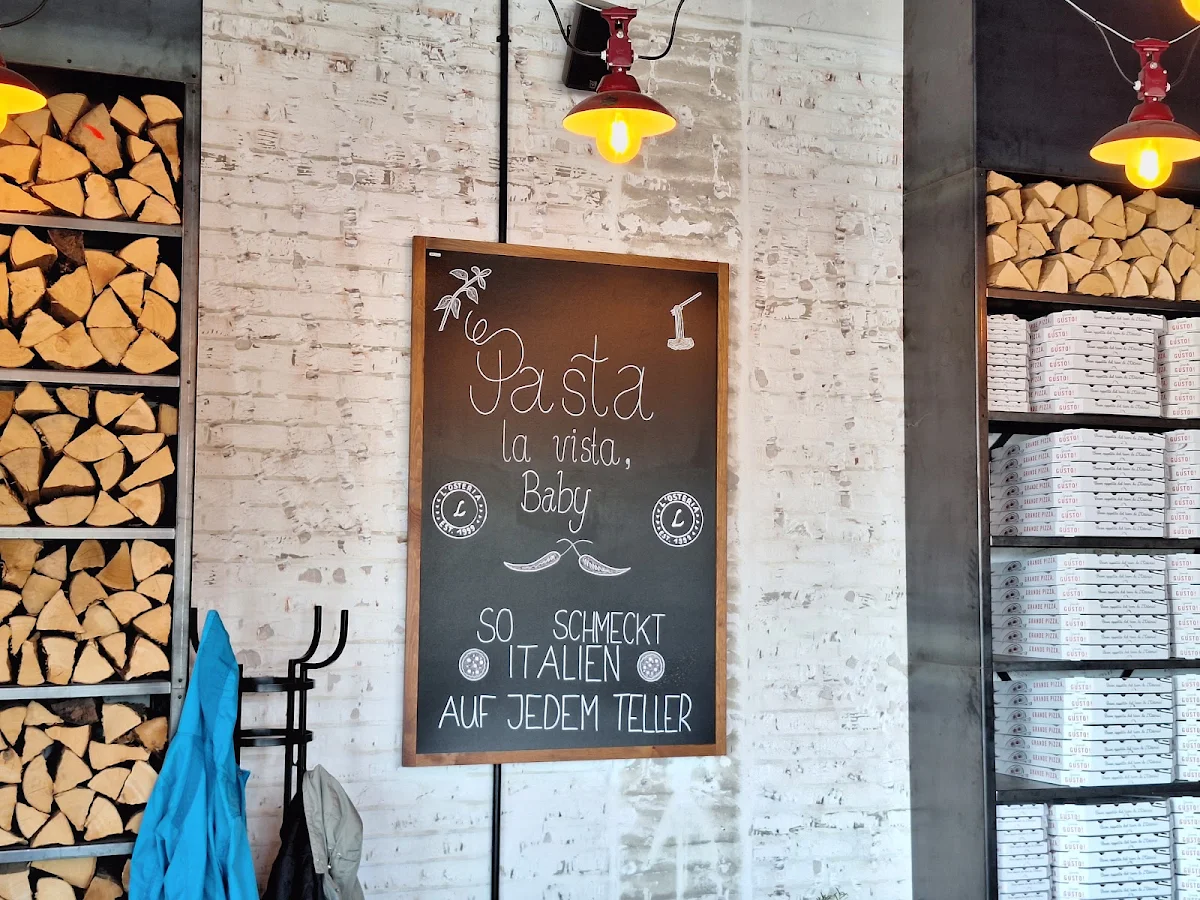 Pasta
la vista,
Baby
L'OSTERIA
L
EST. 1999
L'OSTERIA
L
EST. 1999
SO SCHMECKT
ITALIEN
AUF JEDEM TELLER
GRANDE PIZZA.
GUSTO!